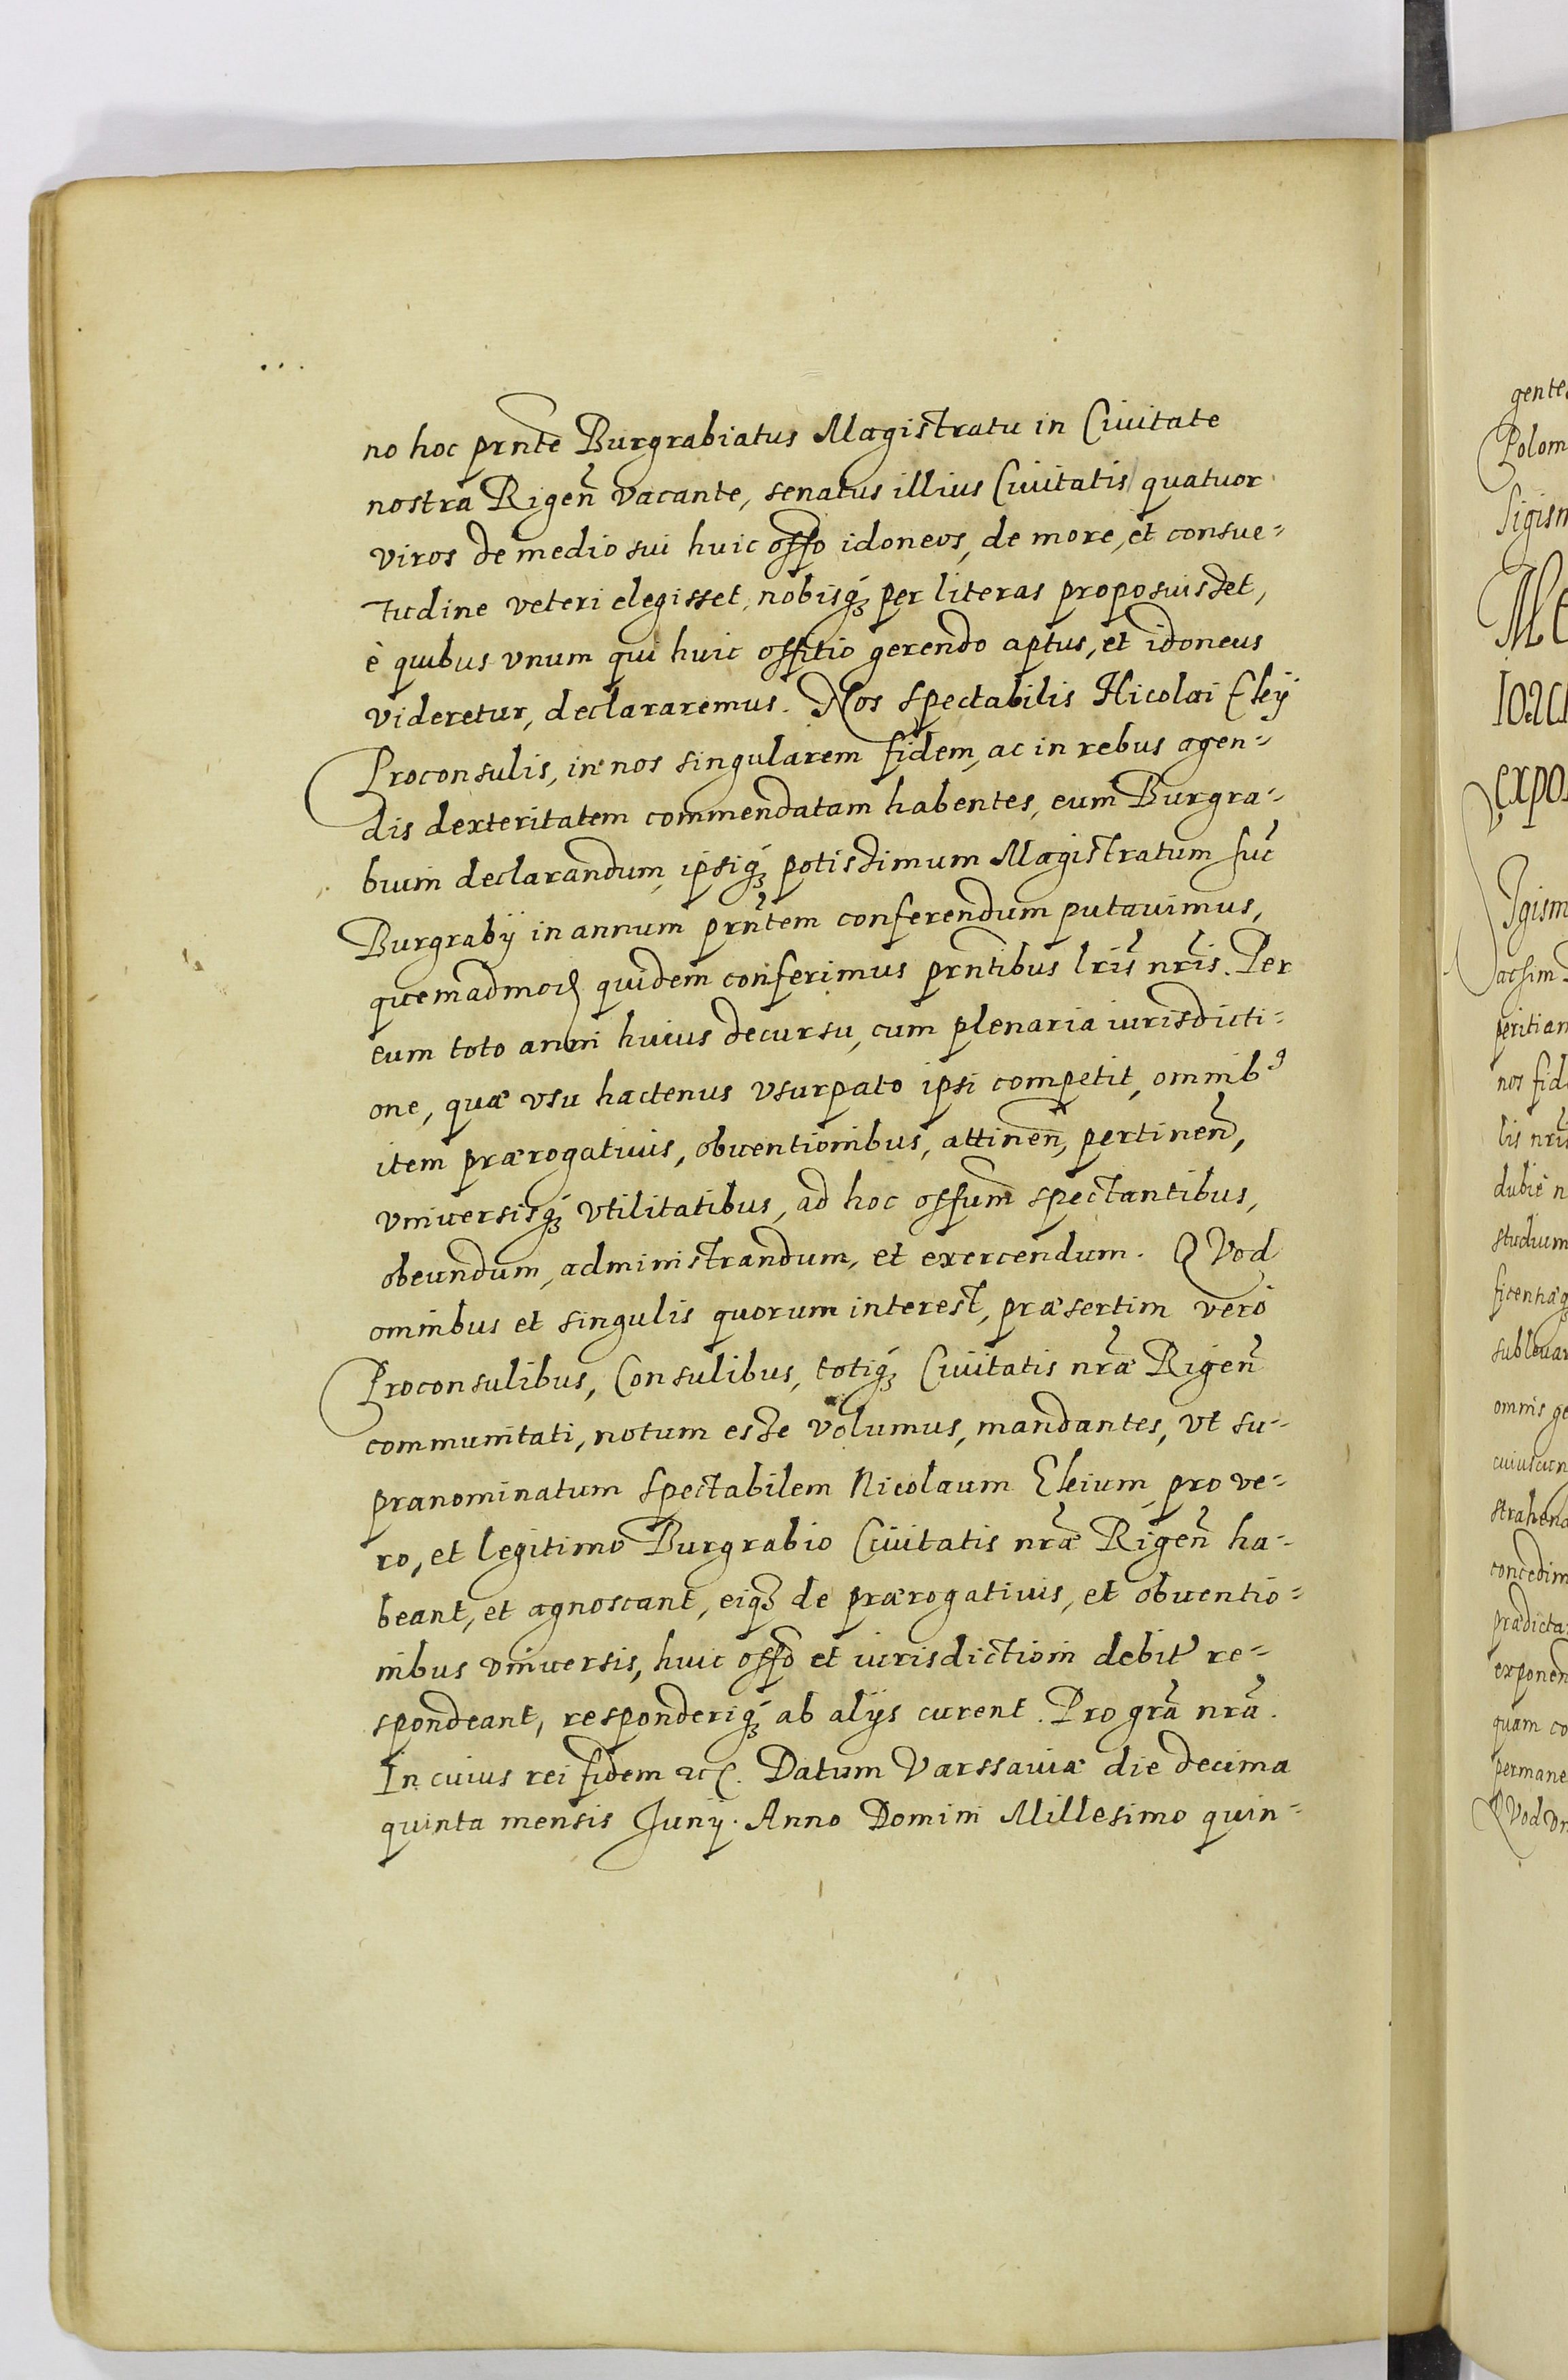 no hoc prnte Burgrabiatus Magistratu in Ciuitate
nostra Rigen vacante, senatus illius Ciuitatis quatuor
viros de medio sui huic offo idoneos, de more, et consue=
tudine veteri elegisset, nobisq₃ per literas proposuisset,
è quibus vnum qui huic offitio gerendo aptus, et idoneus
videretur, declararemus. Nos spectabilis Nicolai Ekij
Proconsulis, in nos singularem fidem, ac in rebus agen=
dis dexteritatem commendatam habentes, eum Burgra=
bium declarandum, ipsiq₃ potissimum Magistratum huc
Burgrabij in annum prntem conferendum putauimus,
quemadmod quidem conferimus prntibus lris nris. Per
eum toto anni huius decursu, cum plenaria iurisdicti=
one, quæ vsu hactenus vsurpato ipsi competit, omnib9
item prærogatiuis, obuentionibus, attinen, pertinen,
vniuersisq₃ vtilitatibus, ad hoc offum spectantibus,
obeundum, administrandum, et exercendum. QVod
omnibus et singulis quorum interest, præsertim verò
Proconsulibus, Consulibus, totiq₃ Ciuitatis nræ Rigen
communitati, notum esse volumus, mandantes, vt su=
pranominatum spectabilem Nicolaum Ekium, pro ve=
ro, et legitimo Burgrabio Ciuitatis nræ Rigen ha=
beant, et agnoscant, eiq₃ de prærogatiuis, et obuentio=
nibus vniuersis, huic offo et iurisdictioni debit re=
spondeant, responderiq₃ ab alijs curent. Pro gra nra.
In cuius rei fidem etc. Datum Varssauiæ die decima
quinta mensis Junij. Anno Domini Millesimo quin=
gente
Polom
Sigism
IOAC
expos
gism
ac sim
peritian
nos fid
lis nris
dubie n
studium
ficentiæq
subleuar
omnis ge
cuiuscun
strahend
concedim
prædicta
exponen
quam co
permane
QVod